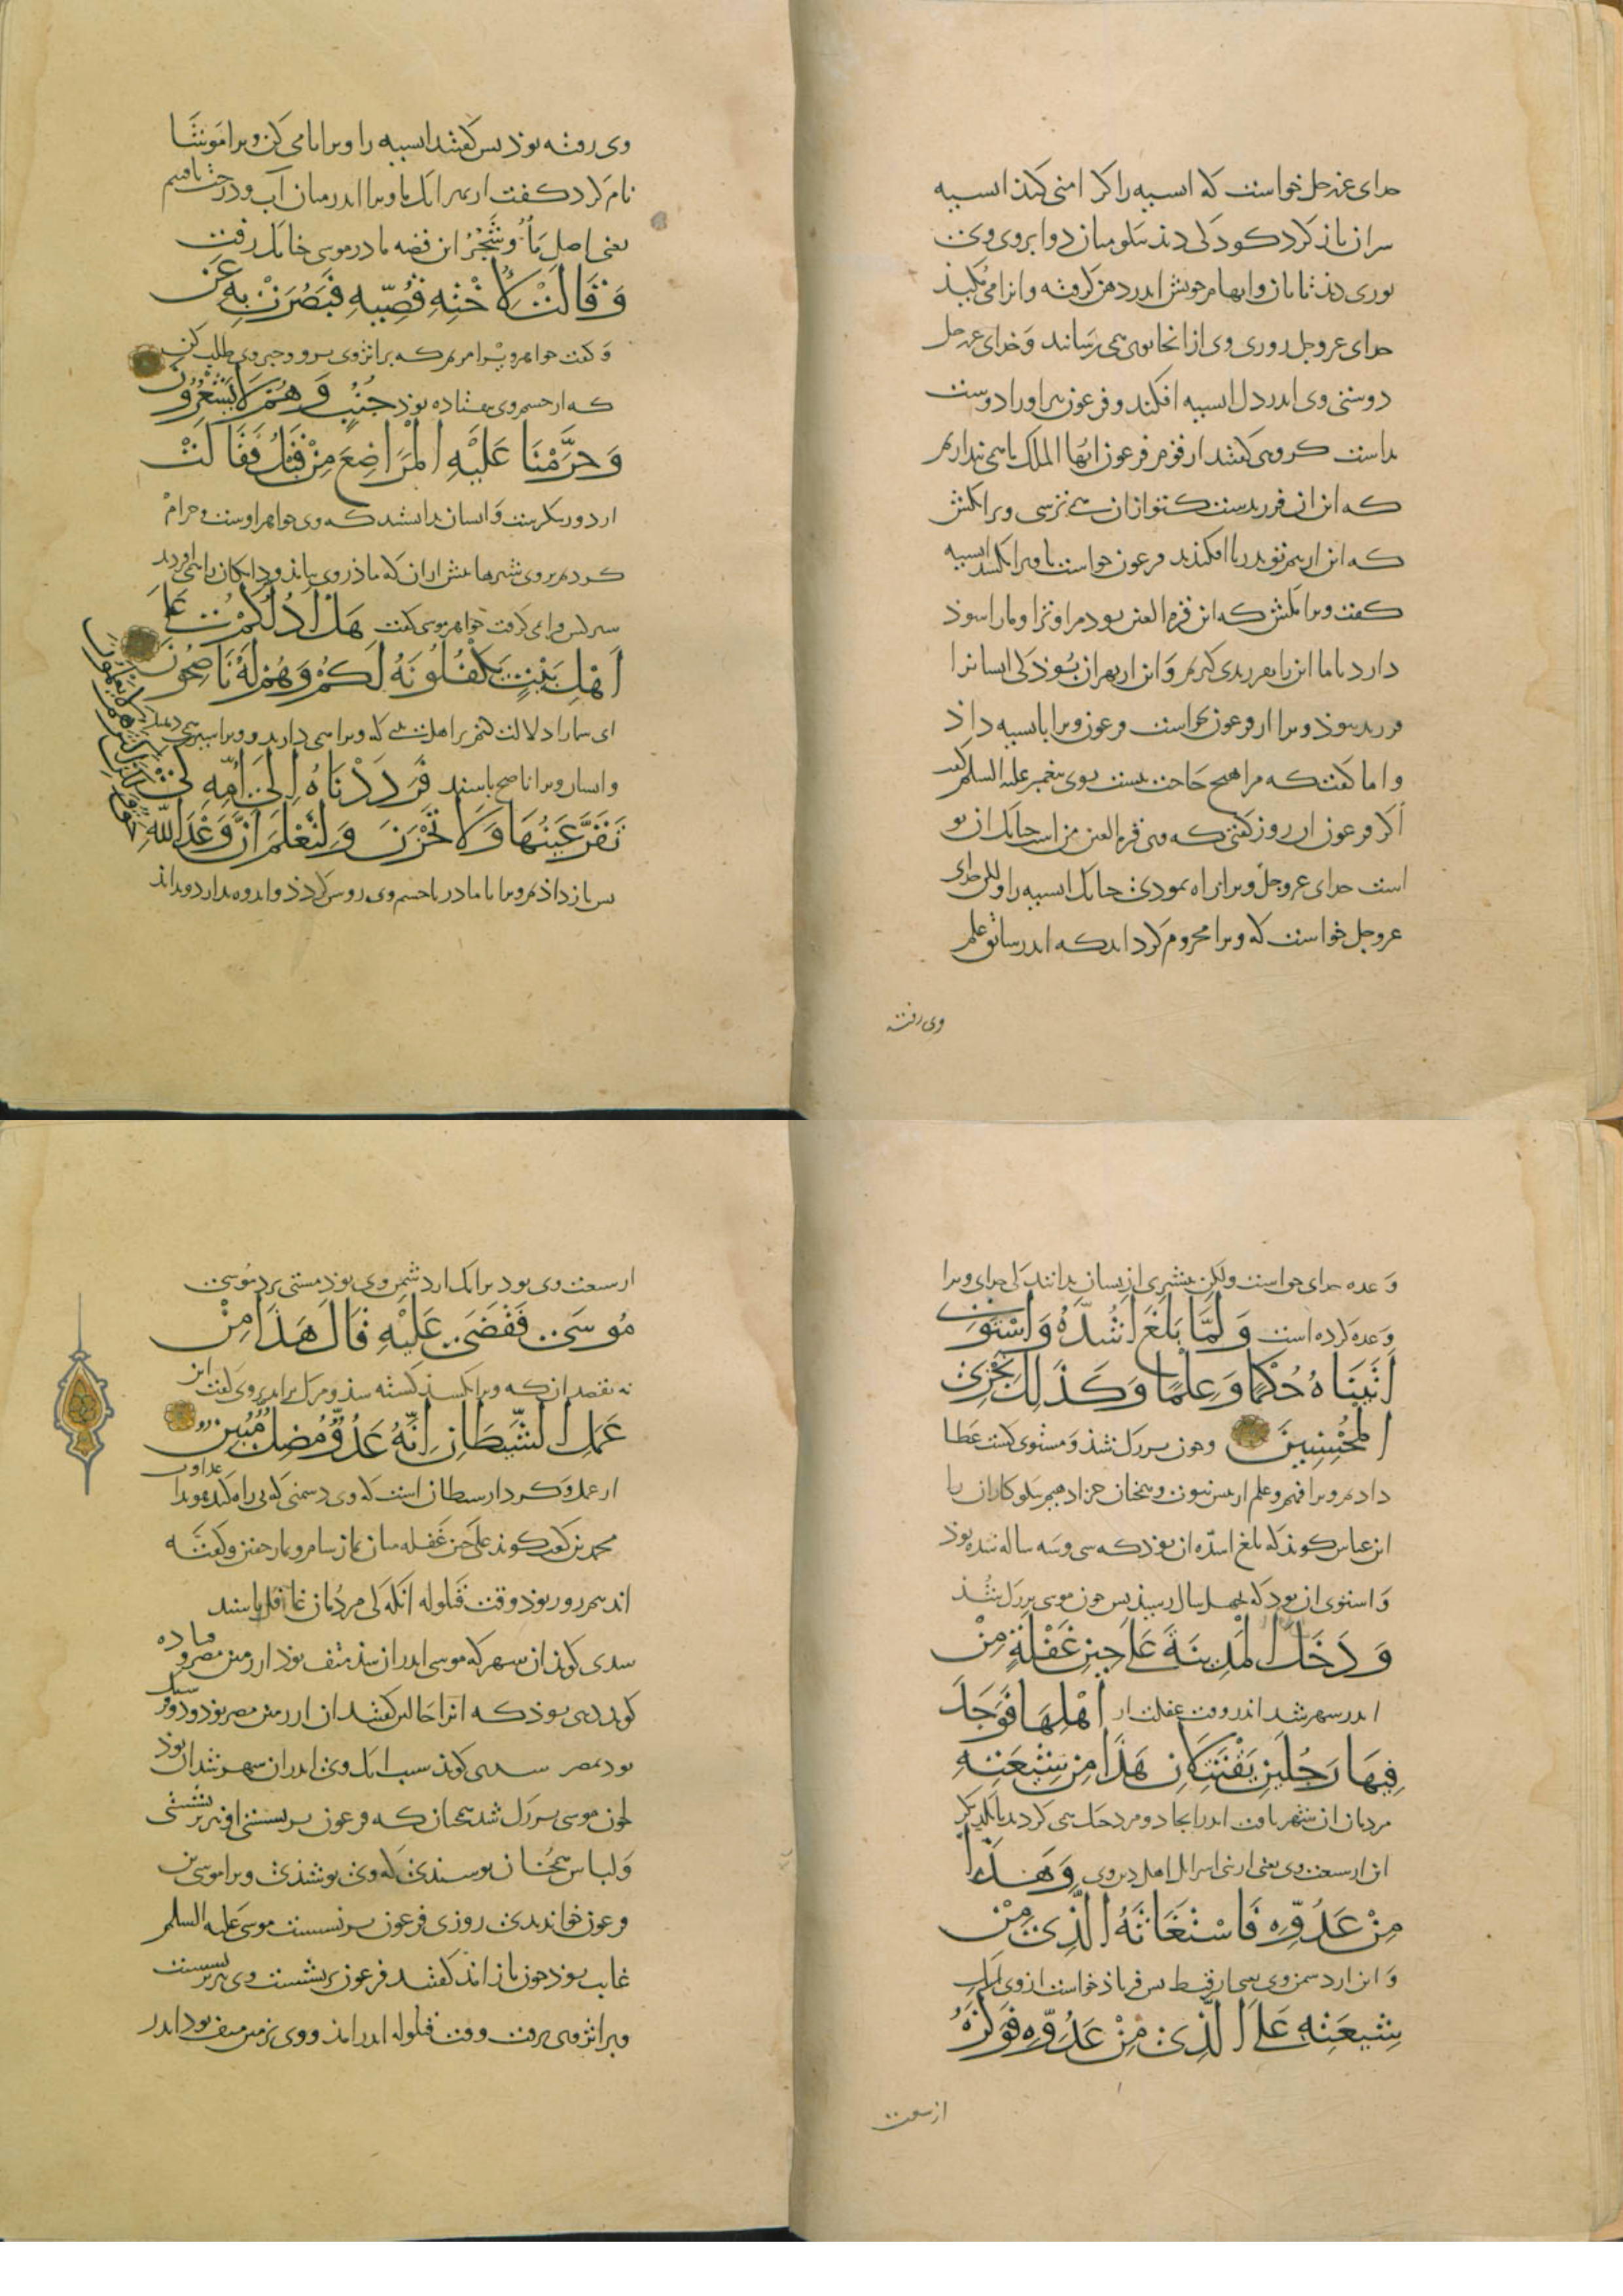 خدای عز و جل خواست که اسیه را کرامتی کند اسیه
سر ان باز کرد کودکی دید نیکو میان دو ابروی وی
نوری دید تابان و ابهام خویش اندر دهن گرفته و انرا می مکید
خدای عز و جل روزی وی از انجا بوی همی رسانید و خدای عز و جل
دوستی وی اندر دل اسیه افکند و فرعون هم او را دوست
داشت گروهی گفتند از قوم فرعون ایها الملک ما همی پنداریم
که این ان فرزندست کتو ازان همی ترسی ویرا بکش
که این از بیم تو بدریا افکندند فرعون خواست تا ویرا بکشد اسیه
گفت ویرا مکش که این قرة العین بود مرا و ترا و مارا سود
دارد یا ما این را بفرزندی گیریم و این از بهر ان بود کی ایشانرا
فرزند نبوذ ویرا از فرعون بخواست فرعون ویرا باسیه داد
و اما گفت که مرا هیچ حاجت نیست بوی پیغمبر علیه السلم گفت
اگر فرعون ان روز گفتی که وی قرة العین من است چنانک ان تو
است خدای عز و جل ویرا راه نمودی چنانک اسیه را ولکن خدای
عز و جل خواست که ویرا محروم گرداند که اندر سابق علم
وی رفته
وی رفته بوذ پس گفتند اسیه را ویرا نامی کن ویرا موشا
نام کرد گفت از بهر انک ما ویرا اندر میان آب و درخت یافتیم
یعنی اصل ماء و شجر این قصه مادر موسی چنانک رفت
وَقَالَتْ لِأُخْتِهِ قُصِّيهِ فَبَصُرَتْ بِهِ عَنْ
و گفت خواهر ویرا مریم که بر اثر وی برو و خبر وی طلب کن
که از چشم وی بیفتاده بود جُنُبٍ وَهُمْ لَا يَشْعُرُونَ
وَحَرَّمْنَا عَلَيْهِ الْمَرَاضِعَ مِنْ قَبْلُ فَقَالَتْ
از دور بنگریست و ایشان ندانستند که وی خواهر اوست و حرام
کردیم بروی شیرها پیش ازان که مادر وی بیامذ و دایگان را همی اوردند
شیر کس فرا نمی گرفت خواهر موسی گفت هَلْ أَدُلُّكُمْ عَلَى
أَهْلِ بَيْتٍ يَكْفُلُونَهُ لَكُمْ وَهُمْ لَهُ نَاصِحُونَ
ای شما را دلالت کنم بر اهل بیتی که ویرا همی دارند و ویرا شیر همی دهند
و ایشان ویرا ناصح باشند فَرَدَدْنَاهُ إِلَى أُمِّهِ كَيْ
تَقَرَّ عَيْنُهَا وَلَا تَحْزَنَ وَلِتَعْلَمَ أَنَّ وَعْدَ اللَّهِ
حَقٌّ وَلَكِنَّ أَكْثَرَهُمْ لَا يَعْلَمُونَ
پس باز داذیم ویرا با مادر تا چشم وی روشن گردد و اندوه ندارد و بداند
وعده خدای حق است ولکن بیشتری ازیشان ندانند کی خدای ویرا
وعده کرده است وَلَمَّا بَلَغَ أَشُدَّهُ وَاسْتَوَى
آتَيْنَاهُ حُكْمًا وَعِلْمًا وَكَذَلِكَ نَجْزِي
الْمُحْسِنِينَ و چون بزرگ شد و مستوی گشت عطا
دادیم ویرا فهم و علم از پیش نبوت و همچنان جزا دهیم نیکوکاران را
ابن عباس گوید که بلغ اشده ان بود که سی و سه ساله شده بود
و استوی ان بود که بچهل سال رسید پس چون موسی بزرگ شد
وَدَخَلَ الْمَدِينَةَ عَلَى حِينِ غَفْلَةٍ مِنْ
اندر شهر شد اندر وقت غفلت از أَهْلِهَا فَوَجَدَ
فِيهَا رَجُلَيْنِ يَقْتَتِلَانِ هَذَا مِنْ شِيعَتِهِ
مردمان ان شهر یافت اندر انجا دو مرد جنگ همی کردند با یکدیگر
این از شیعت وی یعنی از بنی اسرائیل اهل دین وی وَهَذَا
مِنْ عَدُوِّهِ فَاسْتَغَاثَهُ الَّذِي مِنْ
و این از دشمن وی یعنی از قبط پس فریاذ خواست از وی انک
شِيعَتِهِ عَلَى الَّذِي مِنْ عَدُوِّهِ فَوَكَزَهُ
از شیعت
از شیعت وی بود بر انک از دشمن وی بوذ مشتی بزد موسی
مُوسَى فَقَضَى عَلَيْهِ قَالَ هَذَا مِنْ
نه بقصد ان که ویرا بکشد کشته شد و مرگ براند بروی گفت این
عَمَلِ الشَّيْطَانِ إِنَّهُ عَدُوٌّ مُضِلٌّ مُبِينٌ
از عمل و کردار شیطان است که وی دشمنی که بی راه کننده هویدا
محمد بن کعب گوید علی حین غفلة میان نماز شام و نماز خفتن و گفته
اند نیم روز بوذ وقت قیلوله انگه کی مردمان غافل باشند
سدی گوید ان شهر که موسی اندر ان شد منف بود از زمین مصر و
گویند دهی بوذ که انرا خالین گفتند ان از زمین مصر بود و دو
بود بمصر سدی گوید سبب انک وی اندر ان شهر شد ان بوذ
چون موسی بزرگ شد همچنان که فرعون برنشستی او نیز برنشستی
و لباس همچنان پوشیدی که وی پوشیدی ویرا موسی بن
فرعون خواندندی روزی فرعون برنشست موسی علیه السلم
غایب بوذ چون باز امذ گفتند فرعون برنشست وی نیز برنشست
و بر اثر وی برفت وقت قیلوله اندر امذ و وی بزمین منف بود اندر